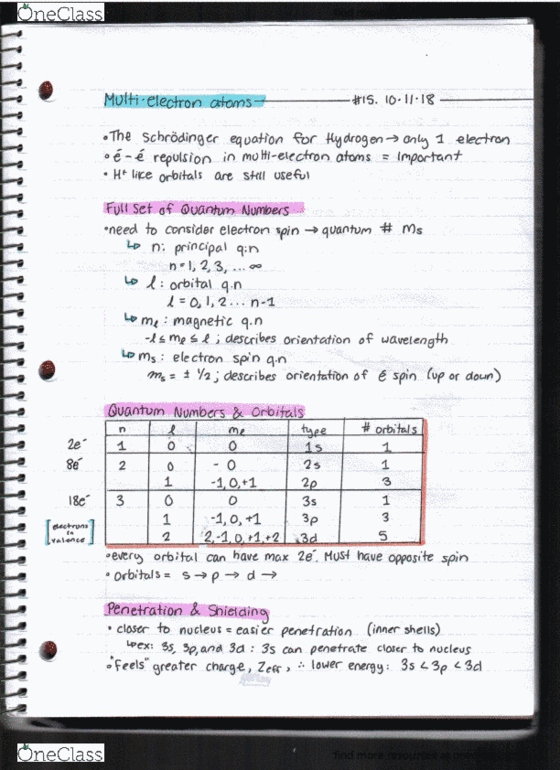 OneClass
Multi-electron atoms #15. 10.11.18
• The Schrödinger equation for Hydrogen → only 1 electron
• é - é repulsion in multi-electron atoms = Important
• H⁺ like orbitals are still useful
Full Set of Quantum Numbers
• need to consider electron spin → quantum # Ms
↳ n: principal q.n
n = 1, 2, 3, ... ∞
↳ l: orbital q.n
l = 0, 1, 2 ... n-1
↳ mℓ: magnetic q.n
-l ≤ mℓ ≤ l ; describes orientation of wavelength
↳ ms: electron spin q.n
ms = ± 1/2 ; describes orientation of é spin (up or down)
Quantum Numbers & Orbitals
n l mℓ type # orbitals
2e⁻ 1 0 0 1s 1
8e⁻ 2 0 - 0 2s 1
1 -1, 0, +1 2p 3
18e⁻ 3 0 0 3s 1
[electrons in valence] 1 -1, 0, +1 3p 3
2 2, -1, 0, +1, +2 3d 5
• every orbital can have max 2e⁻. Must have opposite spin
• Orbitals = s → p → d →
Penetration & Shielding
• closer to nucleus = easier penetration (inner shells)
↳ ex: 3s, 3p, and 3d : 3s can penetrate closer to nucleus
• "Feels" greater charge, Zeff, ∴ lower energy: 3s < 3p < 3d
OneClass
find more resources at